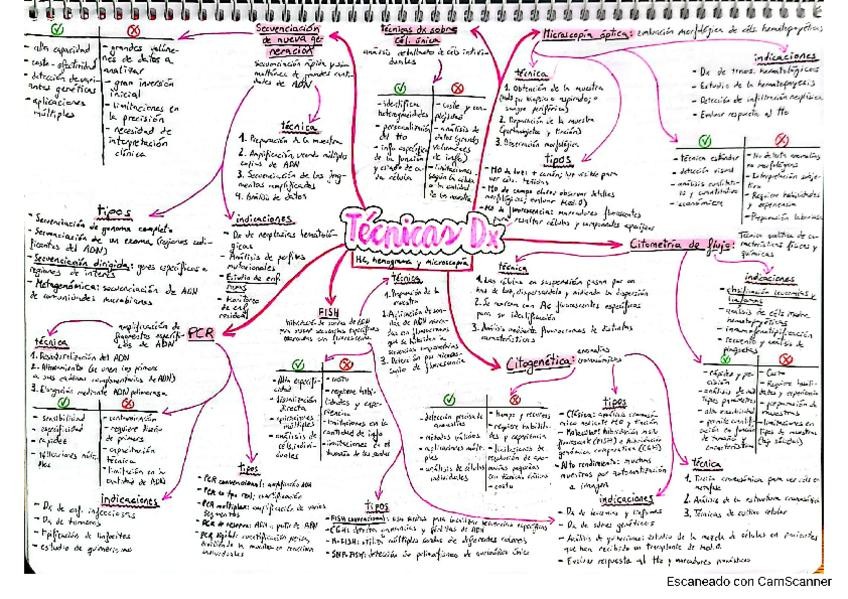 Técnicas Dx
Hc, hemograma y microscopía
Secuenciación
de nueva ge-
neración
Secuenciación rápida y
de ADN
- alta capacidad
- costo-efectividad
- detección de
antes genéticas
- aplicaciones
múltiples
- grandes volúme-
nes de datos a
analizar
- gran inversión
inicial
- limitaciones en
la precisión
- necesidad de
interpretación
clínica
técnica
1. Preparación de la muestra
2. Amplificación, usando múltiples
copias de ADN
3. Secuenciación de los frag-
mentos amplificados
4. Análisis de datos
tipos
- Secuenciación de genoma completo
- Secuenciación de un exoma (regiones codi-
ficantes del ADN)
- Secuenciación dirigida: genes específicos o
regiones de interés
- Metagenómica: secuenciación de ADN
de comunidades microbianas
indicaciones
- Dx de neoplasias hematoló-
gicas
- Análisis de perfiles
mutacionales
- Estudio de enf.
- Monitoreo
de enf.
residual
Técnicas dx sobre
cél. única
análisis detallado de céls indivi-
duales
- identifica
heterogeneidades
- personalización
del tto
- info específica
de la función
y estado de ca-
da célula
- costo y com-
plejidad
- análisis de
datos (grandes
volúmenes
de info)
- limitaciones
según la célula
o la calidad
de la muestra
Microscopía óptica: evaluación morfológica de céls hematopoyéticas
técnica
1. Obtención de la muestra
sangre periférica)
2. Preparación de la muestra
3. Observación morfológica
tipos
- MO de luz: + común, luz visible para
ver céls. teñidas
- MO de campo claro: observar detalles
morfológicos, evaluar
- MO de fluorescencia: marcadores fluorescentes
resaltar células y componentes específicos
indicaciones
- Dx de trnos. hematológicos
- Estudio de la hematopoyesis
- Detección de infiltración neoplásica
- Evaluar respuesta al tto
- técnica estándar
- detección visual
- análisis cualita-
tivo y cuantitativo
- económico
- No detecta anomalías
no morfológicas
- Interpretación subje-
tiva
- Requiere habilidades
y experiencia
- Preparación laboriosa
Citometría de flujo:
Técnica analítica de ca-
racterísticas físicas y
químicas
técnica
1. Las células en suspensión pasan por un
haz de luz, dispersándolo y midiendo la dispersión
2. Se marcan con Ac fluorescentes específicos
para su identificación
3. Análisis mediante fluorocromos de distintas
características
indicaciones
- clasificación leucemias y
linfomas
- análisis de céls madre
hematopoyéticas
- inmunofenotipificación
- recuento y análisis de
plaquetas
- rápida y pre-
cisión
- análisis de
tipos
- alta sensibilidad
- permite cuantifi-
cación en función
de tamaño y
- Costo
- Requiere habili-
dades y experiencia
- preparación de
muestras
- limitaciones en
tipos de muestras
PCR
amplificación de
fragmentos específi-
cos de ADN
técnica
1. Desnaturalización del ADN
2. Alineamiento (se unen los primers
a sus cadenas complementarias de ADN)
3. Elongación mediante ADN polimerasa
- sensibilidad
- especificidad
- rapidez
- aplicaciones múlti-
ples
- contaminación
- requiere diseño
de primers
- capacitación
técnica
- limitación en la
cantidad de ADN
indicaciones
- Dx de enf. infecciosas
- Dx de tumores
- Tipificación de linfocitos
- estudio de quimerismo
tipos
- PCR convencional: amplificar ADN
- PCR en tpo real: cuantificación
- PCR múltiplex: amplificación de varios
segmentos
- PCR digital: cuantificación precisa,
dividiendo la muestra en reacciones
individuales
FISH
técnica
1. Preparación de la
muestra
2. Aplicación de son-
das de ADN marca-
das con fluorocromos
que se hibridan a
secuencias específicas
3. Detección por micros-
copio de fluorescencia
- Alta especifi-
cidad
- visualización
directa
- aplicaciones
múltiples
- análisis de
céls. indivi-
duales
- costo
- requiere habili-
dades y expe-
riencia
- limitaciones en la
cantidad de info
- limitaciones en el
tamaño de las sondas
tipos
- FISH convencional: usa sondas para localizar secuencias específicas
- CGH: detecta ganancias y pérdidas de ADN
- M-FISH: utiliza múltiples sondas de diferentes colores
- SNP-FISH: detección de polimorfismos de nucleótido único
Citogenética:
anomalías
cromosómicas
- detección precisa de
anomalías
- métodos variados
- aplicaciones múlti-
ples
- análisis de células
individuales
- tiempo y recursos
- requiere habilida-
des y experiencia
- costo
tipos
- Clásica: análisis cromosómi-
co mediante
- Molecular: hibridación in situ
fluorescente (FISH) e hibridación
genómica comparativa (CGH)
- Alto rendimiento: muchas
muestras por automatización
e imagen
técnica
1. Tinción cromosómica para ver céls en
metafase
2. Análisis de la estructura cromosómica
3. Técnicas de cultivo celular
indicaciones
- Dx de leucemias y linfomas
- Dx de sdmes genéticos
- Análisis de quimerismo: estudio de la mezcla de células en pacientes
que han recibido un trasplante de
- Evaluar respuesta al tto y marcadores pronósticos
Escaneado con CamScanner